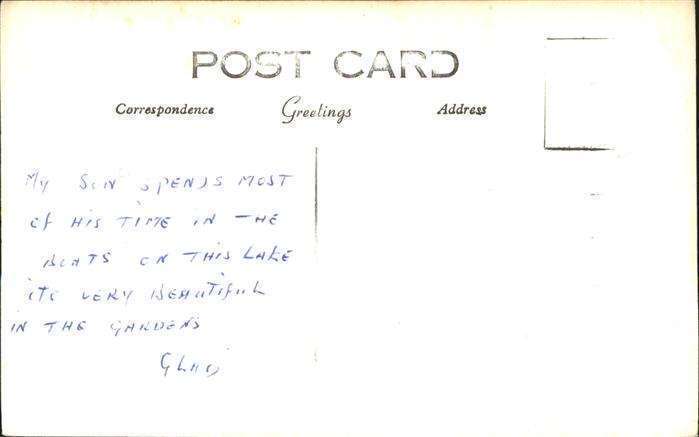 POST CARD
Correspondence Greetings Address
My SON SPENDS MOST
of HIS TIME IN THE
BOATS ON THIS LAKE
ITS VERY BEAUTIFUL
IN THE GARDENS
GLAD